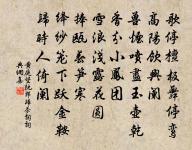 歌停檀板舞停鸞
高陽飲興闌
獸煙噴盡玉壺乾
香分小鳳團
雪浪淺露花圓
捧甌春筍寒
絳紗籠下躍金鞍
歸時人倚闌
黃庭堅阮郎歸茶詞